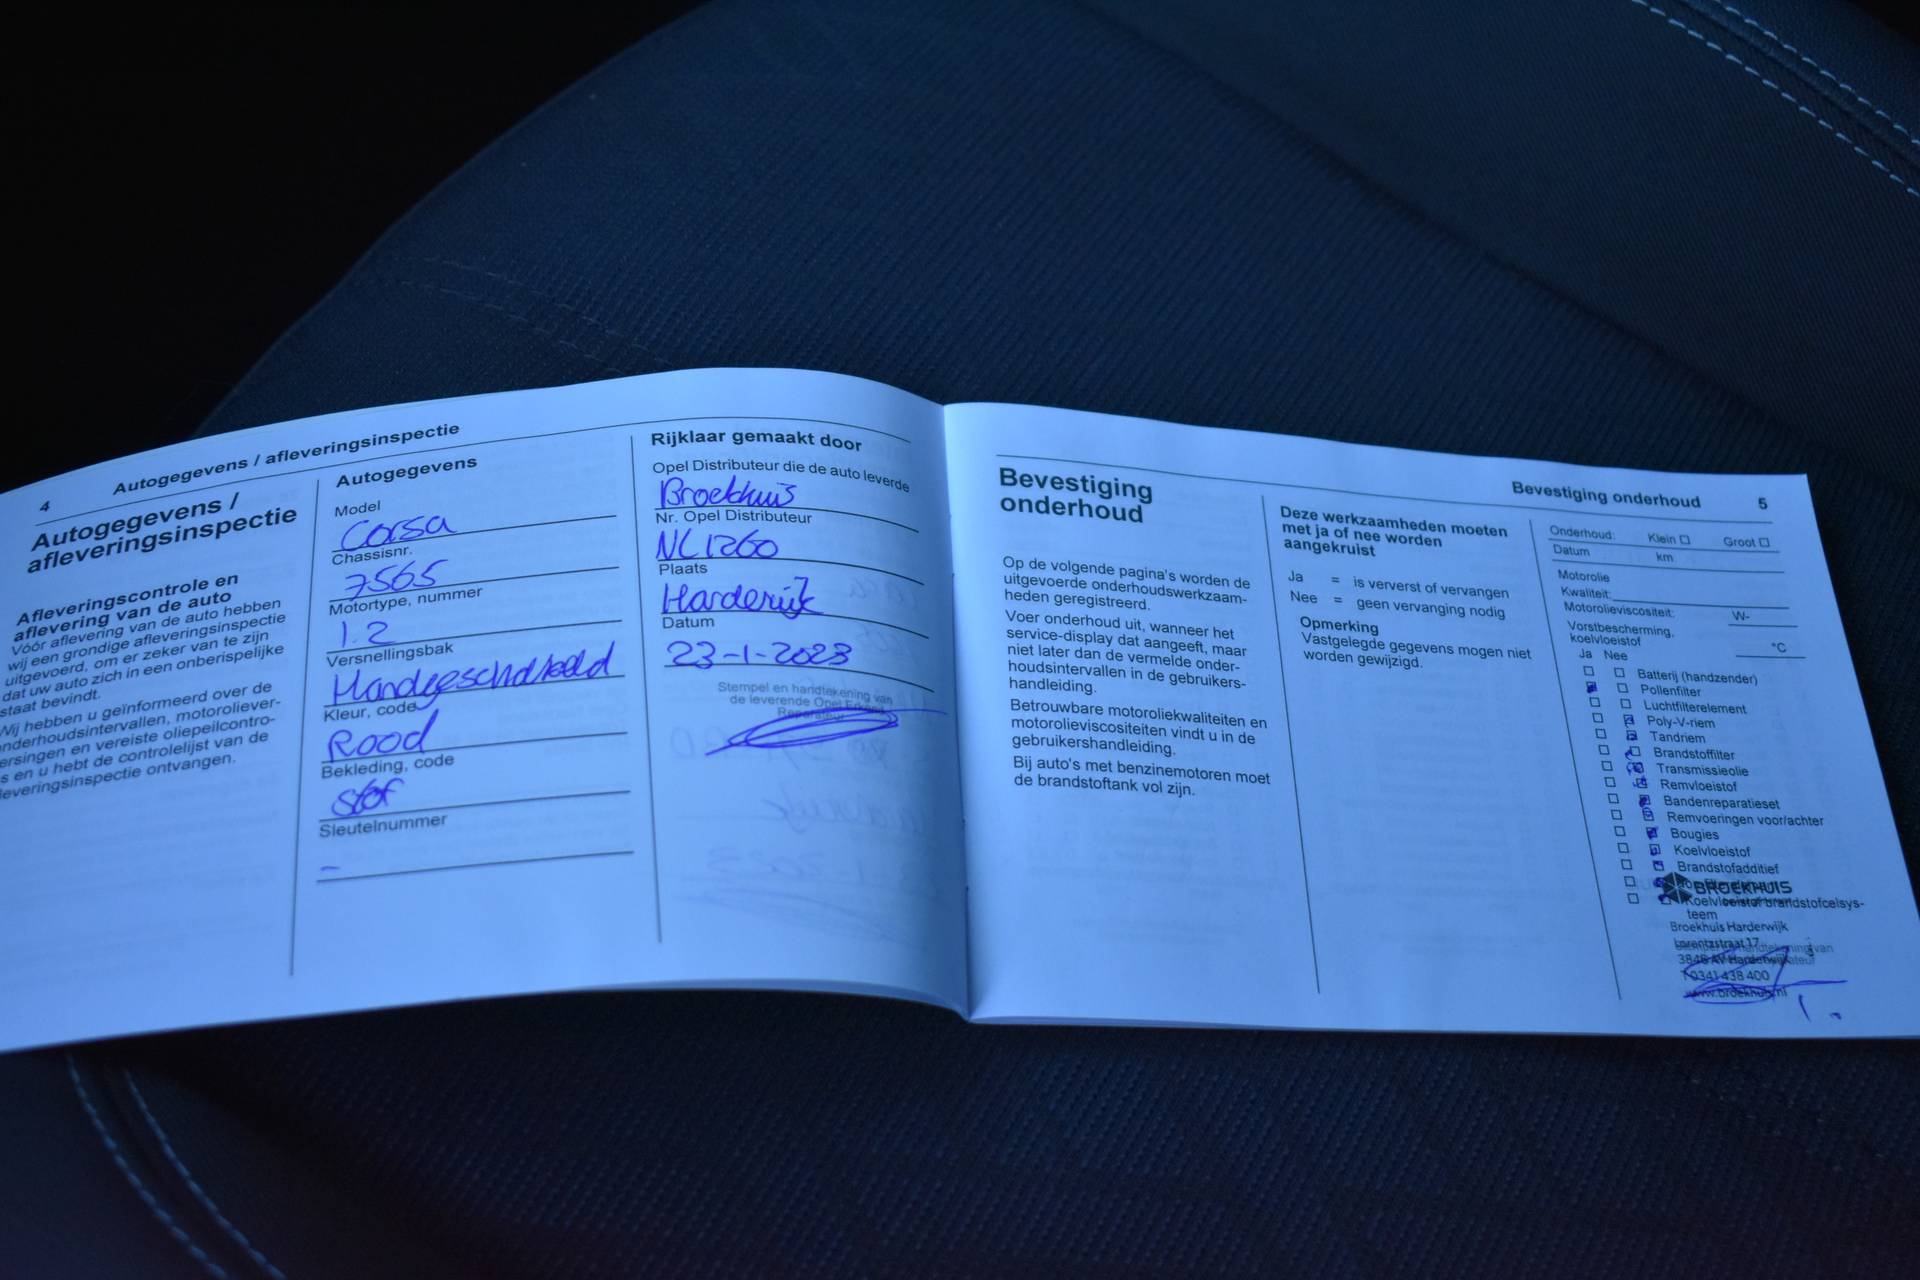 4
Autogegevens / afleveringsinspectie
Autogegevens /
afleveringsinspectie
Afleveringscontrole en
aflevering van de auto
Vóór aflevering van de auto hebben
wij een grondige afleveringsinspectie
uitgevoerd, om er zeker van te zijn
dat uw auto zich in een onberispelijke
staat bevindt.
Wij hebben u geïnformeerd over de
onderhoudsintervallen, motoroliever-
ersingen en vereiste oliepeilcontro-
s en u hebt de controlelijst van de
leveringsinspectie ontvangen.
Autogegevens
Model
Corsa
Chassisnr.
7565
Motortype, nummer
1.2
Versnellingsbak
Handgeschakeld
Kleur, code
Rood
Bekleding, code
stof
Sleutelnummer
-
Rijklaar gemaakt door
Opel Distributeur die de auto leverde
Broekhuis
Nr. Opel Distributeur
NL1260
Plaats
Harderwijk
Datum
23-1-2023
Stempel en handtekening van
de leverende Opel Erkend
Reparateur
Bevestiging onderhoud
5
Bevestiging
onderhoud
Op de volgende pagina's worden de
uitgevoerde onderhoudswerkzaam-
heden geregistreerd.
Voer onderhoud uit, wanneer het
service-display dat aangeeft, maar
niet later dan de vermelde onder-
houdsintervallen in de gebruikers-
handleiding.
Betrouwbare motoroliekwaliteiten en
motorolieviscositeiten vindt u in de
gebruikershandleiding.
Bij auto's met benzinemotoren moet
de brandstoftank vol zijn.
Deze werkzaamheden moeten
met ja of nee worden
aangekruist
Ja = is ververst of vervangen
Nee = geen vervanging nodig
Opmerking
Vastgelegde gegevens mogen niet
worden gewijzigd.
Onderhoud: Klein Groot
Datum km
Motorolie
Kwaliteit:
Motorolieviscositeit: W-
Vorstbescherming,
koelvloeistof °C
Ja Nee
Batterij (handzender)
Pollenfilter
Luchtfilterelement
Poly-V-riem
Tandriem
Brandstoffilter
Transmissieolie
Remvloeistof
Bandenreparatieset
Remvoeringen voor/achter
Bougies
Koelvloeistof
Brandstofadditief
BROEKHUIS
Koelvloeistof brandstofcelsys-
teem
Broekhuis Harderwijk
Lorentzstraat 17
3846 AV Harderwijk
T 0341 438 400
www.broekhuis.nl